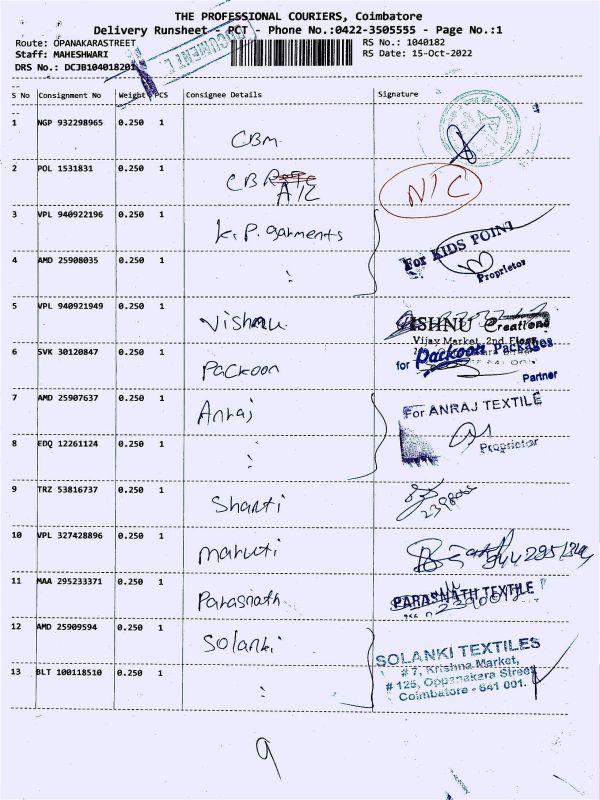 THE PROFESSIONAL COURIERS, Coimbatore
Delivery Runsheet - PCT - Phone No.:0422-3505555 - Page No.:1
Route: OPANAKARASTREET
RS No.: 1040182
Staff: MAHESHWARI
RS Date: 15-Oct-2022
DRS No.: DCJB104018201
DOCUMENT
S No Consignment No Weight PCS Consignee Details Signature
1 NGP 932298965 0.250 1 CBM
2 POL 1531831 0.250 1 CB
A/C
N/C
3 VPL 940922196 0.250 1 K.P. garments
For KIDS POINT
Proprietor
4 AMD 25908035 0.250 1 :
5 VPL 940921949 0.250 1 Vishnu
VISHNU Creations
Vijay Market, 2nd Floor
6 SVK 30120847 0.250 1 Packoon
for Packoon Packages
Partner
7 AMD 25907637 0.250 1 Anraj
For ANRAJ TEXTILE
Proprietor
8 EDQ 12261124 0.250 1 :
9 TRZ 53816737 0.250 1 Shanti
10 VPL 327428896 0.250 1 Maruti
11 MAA 295233371 0.250 1 Parasnath
PARASNATH TEXTILE
12 AMD 25909594 0.250 1 Solanki
SOLANKI TEXTILES
# 7, Krishna Market,
# 125, Oppanakara Street
Coimbatore - 641 001.
13 BLT 100118510 0.250 1 :
9